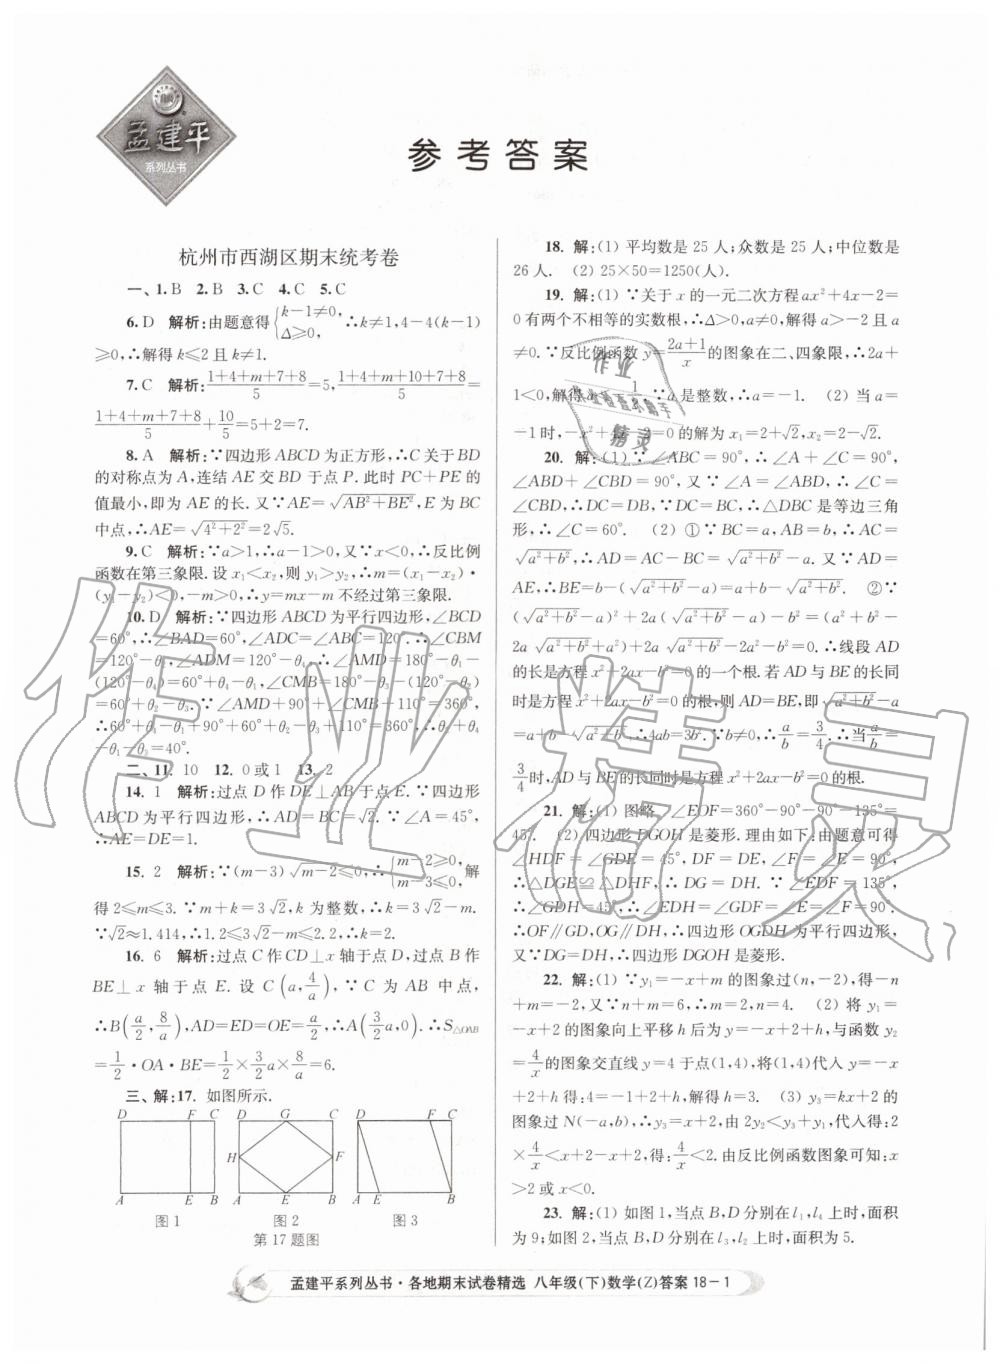 孟建平
系列丛书
参考答案
杭州市西湖区期末统考卷
一、1.B 2.B 3.C 4.C 5.C
6.D 解析:由题意得{k-1≠0, Δ≥0, ∴k≠1,4-4(k-1)
≥0,∴解得k≤2且k≠1.
7.C 解析:(1+4+m+7+8)/5=5,(1+4+m+10+7+8)/5=
(1+4+m+7+8)/5+10/5=5+2=7.
8.A 解析:∵四边形ABCD为正方形,∴C关于BD
的对称点为A,连结AE交BD于点P.此时PC+PE的
值最小,即为AE的长.又∵AE=√(AB²+BE²),E为BC
中点,∴AE=√(4²+2²)=2√5.
9.C 解析:∵a>1,∴a-1>0,又∵x<0,∴反比例
函数在第三象限.设x₁<x₂,则y₁>y₂,∴m=(x₁-x₂)·
(y₁-y₂)<0,-m>0,∴y=mx-m不经过第三象限.
10.D 解析:∵四边形ABCD为平行四边形,∠BCD
=60°,∴∠BAD=60°,∠ADC=∠ABC=120°.∴∠CBM
=120°-θ₃,∠ADM=120°-θ₁,∴∠AMD=180°-θ₁-
(120°-θ₄)=60°+θ₄-θ₁,∠CMB=180°-θ₃-(120°-θ₂)
=60°+θ₂-θ₃.∵∠AMD+90°+∠CMB+110°=360°,
∴60°+θ₄-θ₁+90°+60°+θ₂-θ₃+110°=360°,∴θ₂+θ₄
-θ₁-θ₃=40°.
二、11. 10 12. 0或1 13. 2
14. 1 解析:过点D作DE⊥AB于点E.∵四边形
ABCD为平行四边形,∴AD=BC=√2.∵∠A=45°,
∴AE=DE=1.
15. 2 解析:∵(m-3)√(m-2)≤0,∴{m-2≥0, m-3≤0, 解
得2≤m≤3.∵m+k=3√2,k为整数,∴k=3√2-m.
∵√2≈1.414,∴1.2≤3√2-m≤2.2,∴k=2.
16. 6 解析:过点C作CD⊥x轴于点D,过点B作
BE⊥x轴于点E.设C(a,4/a),∵C为AB中点,
∴B(a/2,8/a),AD=ED=OE=a/2,∴A(3/2 a,0).∴S△OAB
=1/2·OA·BE=1/2×3/2a×8/a=6.
三、解:17. 如图所示.
D F C A E B
D G C H F A E B
D F C A E B
图1 图2 图3
第17题图
18. 解:(1) 平均数是25人;众数是25人;中位数是
26人. (2) 25×50=1250(人).
19. 解:(1) ∵关于x的一元二次方程ax²+4x-2=
0有两个不相等的实数根,∴Δ>0,a≠0,解得a>-2且a
≠0.∵反比例函数y=(2a+1)/x的图象在二、四象限,∴2a+
1<0,解得a<-1/2.∵a是整数,∴a=-1. (2) 当a=
-1时,-x²+4x-2=0的解为x₁=2+√2,x₂=2-√2.
20. 解:(1) ∵∠ABC=90°,∴∠A+∠C=90°,
∠ABD+∠CBD=90°,又∵∠A=∠ABD,∴∠C=
∠CBD,∴DC=DB,∵DC=BC,∴△DBC是等边三角
形,∴∠C=60°. (2) ①∵BC=a,AB=b,∴AC=
√(a²+b²),∴AD=AC-BC=√(a²+b²)-a.又∵AD=
AE,∴BE=b-(√(a²+b²)-a)=a+b-√(a²+b²). ②∵
(√(a²+b²)-a)²+2a(√(a²+b²)-a)-b²=(a²+b²-
2a√(a²+b²)+a²)+2a√(a²+b²)-2a²-b²=0.∴线段AD
的长是方程x²+2ax-b²=0的一个根.若AD与BE的长同
时是方程x²+2ax-b²=0的根,则AD=BE,即√(a²+b²)-a
=a+b-√(a²+b²),∴4ab=3b².∵b≠0,∴a/b=3/4.∴当a/b=
3/4时,AD与BE的长同时是方程x²+2ax-b²=0的根.
21. 解:(1) 图略,∠EDF=360°-90°-90°-135°=
45°. (2) 四边形DGOH是菱形.理由如下:由题意可得
∠HDF=∠GDE=45°,DF=DE,∠F=∠E=90°,
∴△DGE≌△DHF,∴DG=DH.∵∠EDF=135°,
∴∠GDH=45°,∴∠EDH=∠GDF=∠E=∠F=90°.
∴OF∥GD,OG∥DH,∴四边形OGDH为平行四边形,
又∵DG=DH,∴四边形DGOH是菱形.
22. 解:(1) ∵y₁=-x+m的图象过(n,-2),得-n
+m=-2,又∵n+m=6,∴m=2,n=4. (2) 将y₁=
-x+2的图象向上平移h后为y=-x+2+h,与函数y₂
=4/x的图象交直线y=4于点(1,4),将(1,4)代入y=-x
+2+h得:4=-1+2+h,解得h=3. (3) y₃=kx+2的
图象过N(-a,b),∴y₃=x+2,由2y₂<y₃+y₁,代入得:2
×4/x<x+2-x+2,得:4/x<2.由反比例函数图象可知:x
>2或x<0.
23. 解:(1) 如图1,当点B,D分别在l₁,l₄上时,面积
为9;如图2,当点B,D分别在l₃,l₂上时,面积为5.
孟建平系列丛书·各地期末试卷精选 八年级(下)数学(Z)答案 18-1
作业精灵